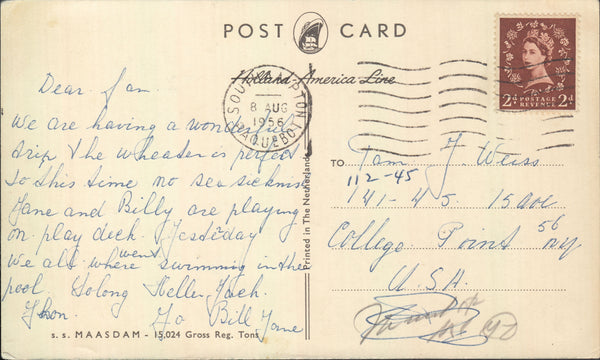 POST CARD
Holland-America Line
SOUTHAMPTON
8 AUG
1956
PAQUEBOT
2d POSTAGE REVENUE 2d
Dear Jan.
We are having a wonderfull
trip & the wheader is perfect
to this time no sea sickness
Jane and Billy are playing
on play deck. Yesterday
we all where went swimming in the
pool. Solong Jack.
Jo Bill Jane
s.s. MAASDAM - 15,024 Gross Reg. Tons
Printed in The Netherlands
TO
Tam J. Weiss
112-45
141-45. 15 ave
College Point 56 NY
U.S.A.